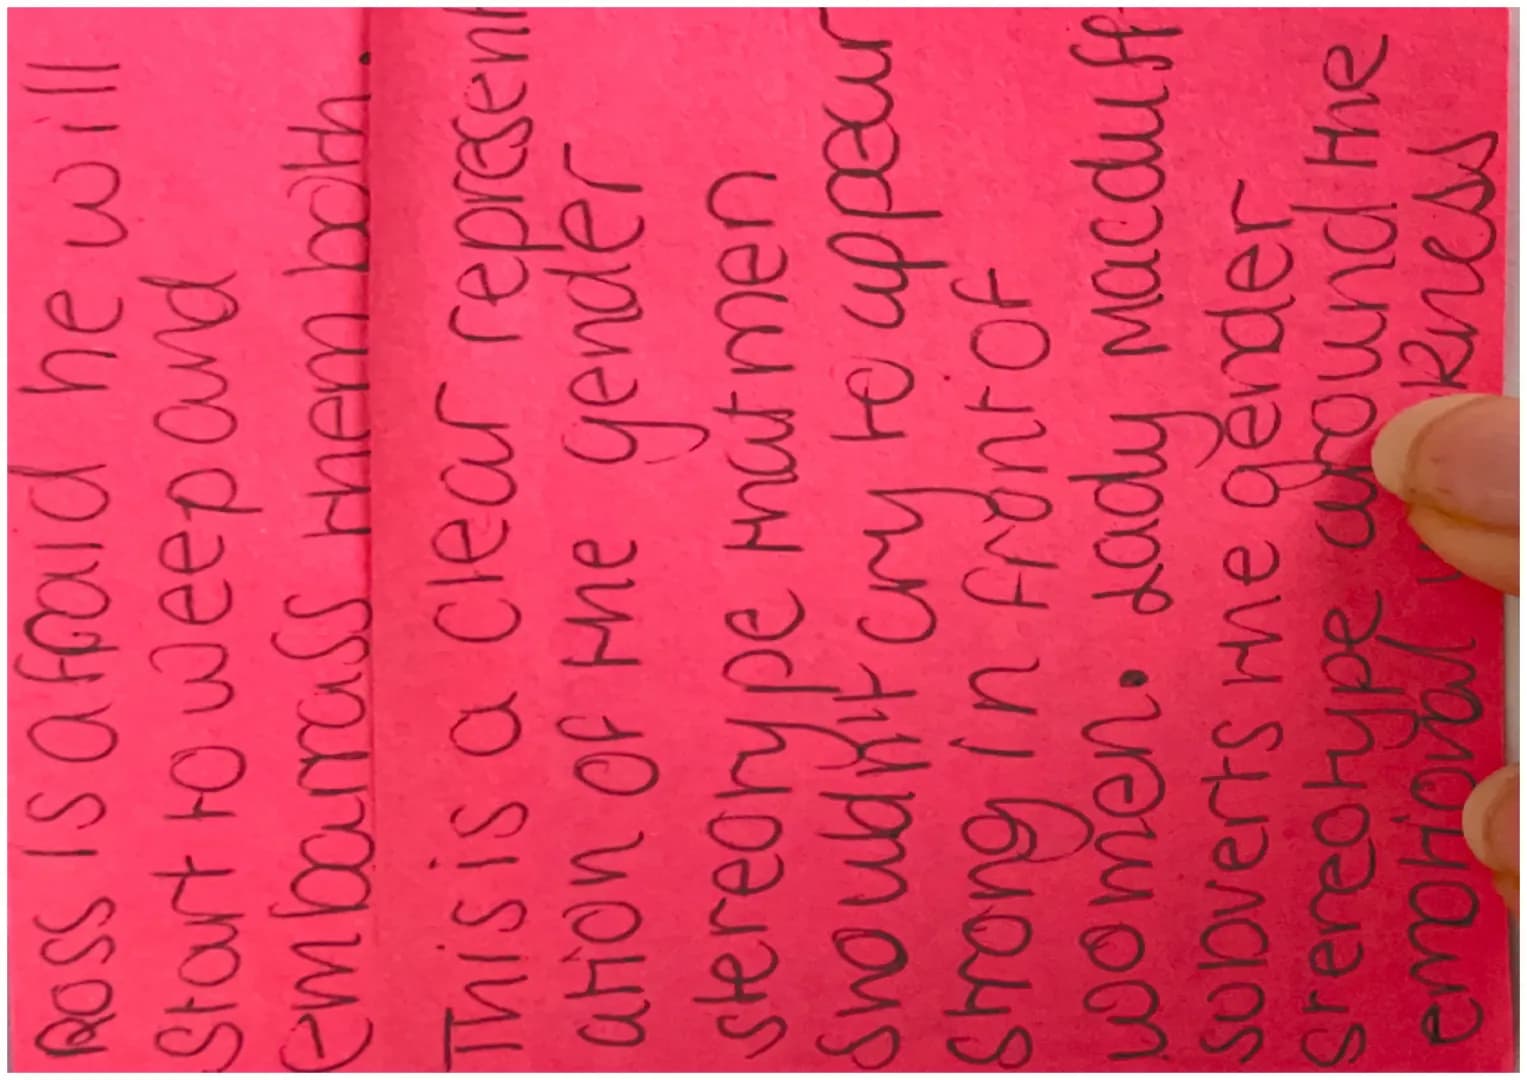 Ross is afraid he will
start to weep and
embarrass them both.
This is a clear represent
ation of the gender
stereotype that men
shouldnt cry to appear
strong in front of
women. Lady Macduff
subverts the gender
stereotype around the
emotional